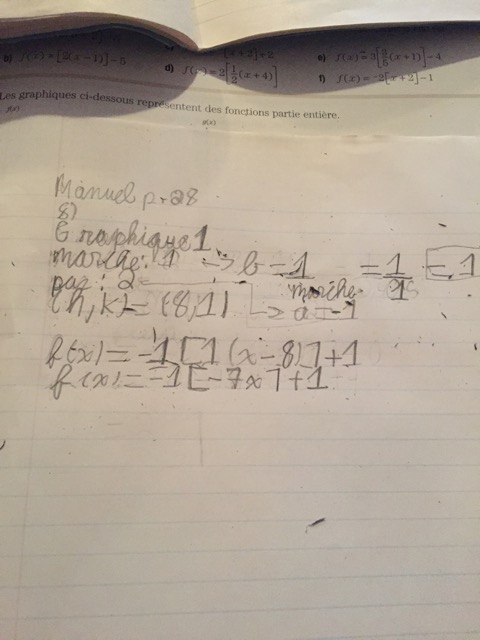 b) f(x)=[2(x-1)]-5
[x+2]+2
e) f(x)=3[3/5(x+1)]-4
d) f(x)=2[1/2(x+4)]
f) f(x)=-2[x+2]-1
Les graphiques ci-dessous représentent des fonctions partie entière.
Manuel p.28
8)
Graphique 1
marche: 1 -> b=1/marche =1/1 =1
pas: 2
(h,k)=(8,1) -> a=-1
f(x)=-1[1(x-8)]+1
f(x)=-1[-7x]+1